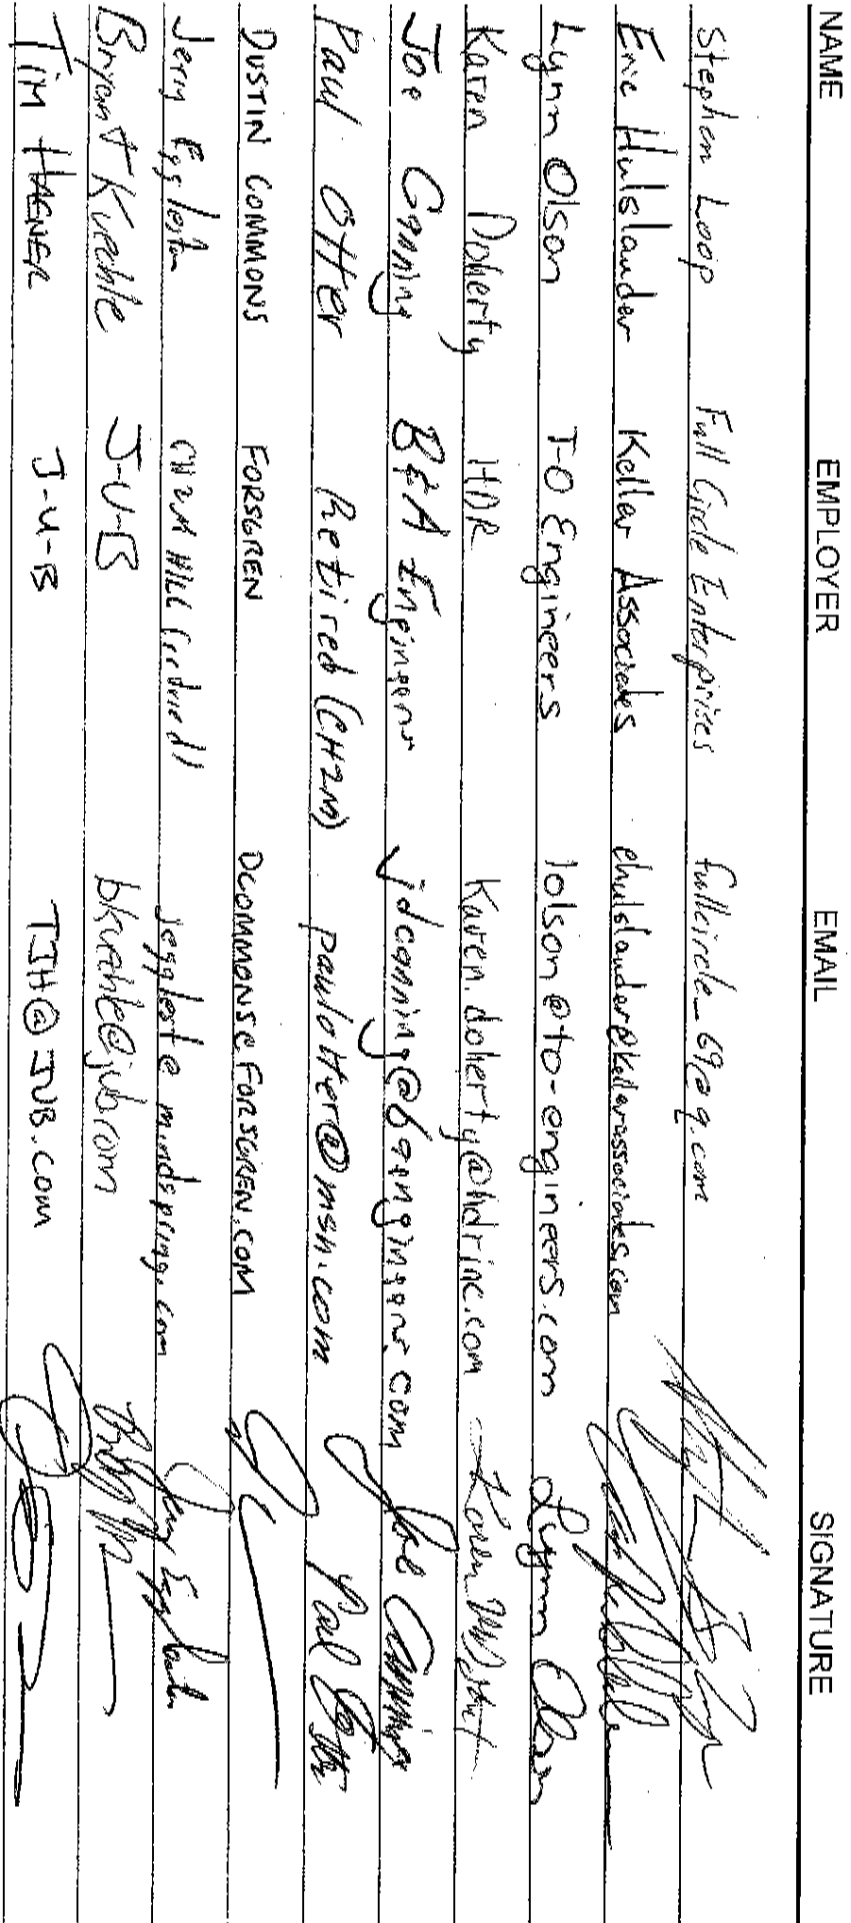 NAME EMPLOYER EMAIL SIGNATURE
Stephen Loop Full Circle Enterprises fullcircle_69@q.com
Eric Hulslander Keller Associates ehulslander@kellerassociates.com
Lynn Olson T-O Engineers lolson@to-engineers.com Lynn Olson
Karen Doherty HDR Karen.doherty@hdrinc.com Karen
Joe Canning B&A Engineers jdcanning@baengineers.com Joe Canning
Paul Otter Retired (CH2M) paulotter@msn.com Paul Otter
DUSTIN COMMONS FORSGREN DCOMMONS@FORSGREN.COM
Jerry Eggleston CH2M HILL (retired) jegglest@mindspring.com Jerry Eggleston
Bryant Kuechle J-U-B bkuechle@jub.com
TIM HAENER J-U-B TJH@JUB.COM